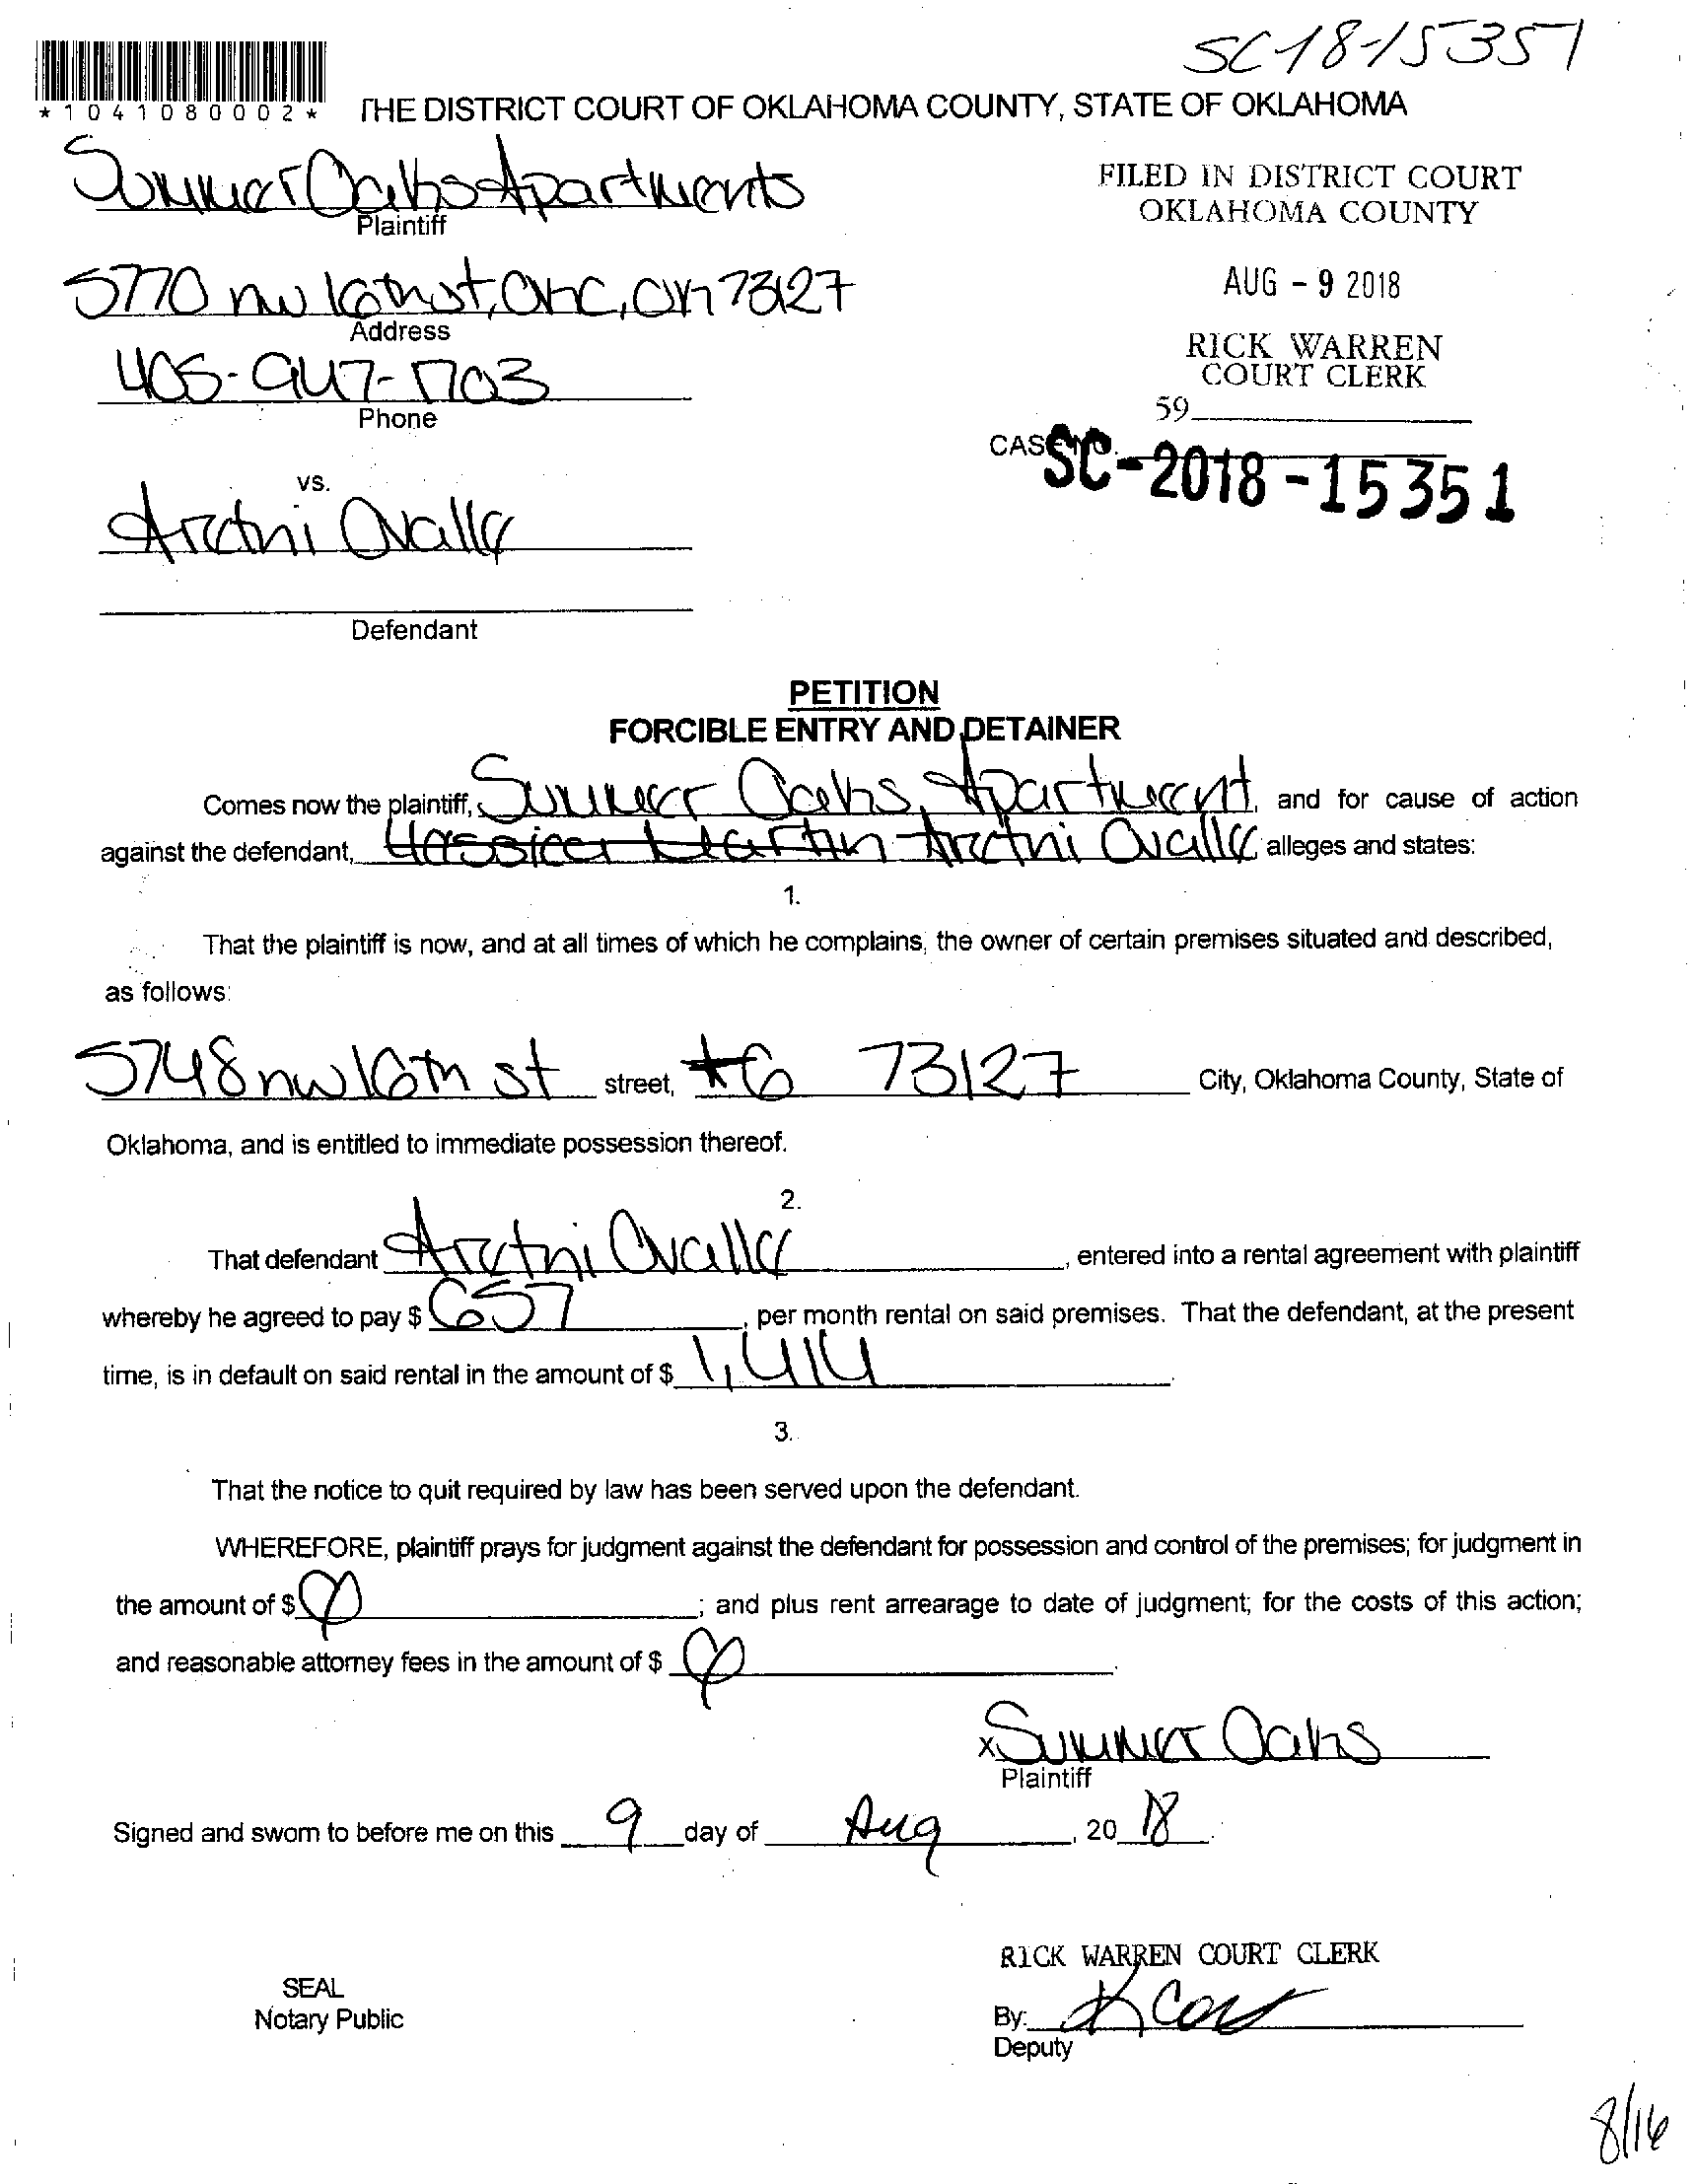 SC-18-15351
*1041080002*
THE DISTRICT COURT OF OKLAHOMA COUNTY, STATE OF OKLAHOMA
Summer Oaks Apartments
Plaintiff
FILED IN DISTRICT COURT
OKLAHOMA COUNTY
5770 nw 16th st, OKC, OK 73127
Address
AUG - 9 2018
405-947-1703
Phone
RICK WARREN
COURT CLERK
59
CASE NO. SC-2018-15351
vs.
Arethi Ovalle
Defendant
PETITION
FORCIBLE ENTRY AND DETAINER
Comes now the plaintiff, Summer Oaks, Apartment, and for cause of action
against the defendant, Arethi Ovalle alleges and states:
1.
That the plaintiff is now, and at all times of which he complains, the owner of certain premises situated and described,
as follows:
5748 nw 16th st street, #6 73127 City, Oklahoma County, State of
Oklahoma, and is entitled to immediate possession thereof.
2.
That defendant Arethi Ovalle, entered into a rental agreement with plaintiff
whereby he agreed to pay $ 657, per month rental on said premises. That the defendant, at the present
time, is in default on said rental in the amount of $ 1,414.
3.
That the notice to quit required by law has been served upon the defendant.
WHEREFORE, plaintiff prays for judgment against the defendant for possession and control of the premises; for judgment in
the amount of $ ; and plus rent arrearage to date of judgment; for the costs of this action;
and reasonable attorney fees in the amount of $ .
x Summer Oaks
Plaintiff
Signed and sworn to before me on this 9 day of Aug, 20 18.
RICK WARREN COURT CLERK
SEAL
Notary Public
By:
Deputy
8/16